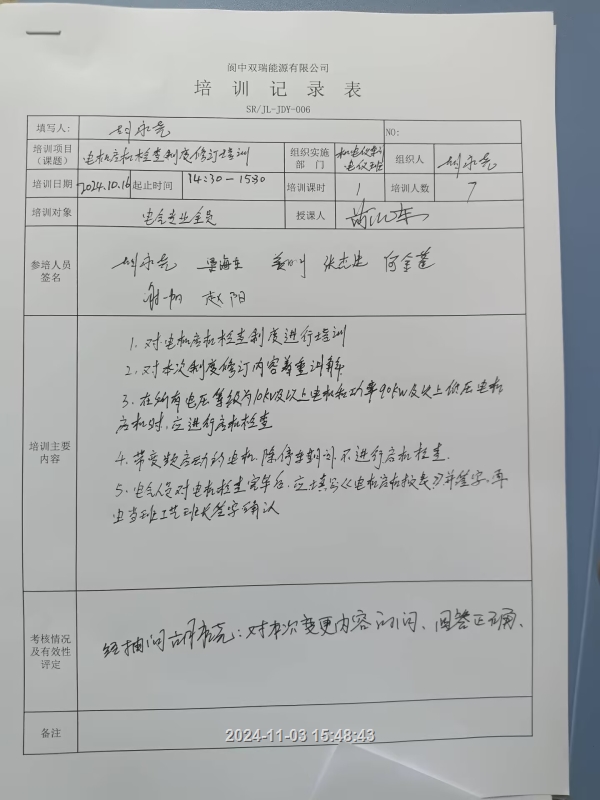 阆中双瑞能源有限公司
培训记录表
SR/JL-JDY-006
填写人: 刘永亮 NO:
培训项目(课题) 电机启机检查制度修订培训 组织实施部门 机电仪车间电仪班 组织人 刘永亮
培训日期 2024.10.16 起止时间 14:30—1530 培训课时 1 培训人数 7
培训对象 电气专业全员 授课人
参培人员签名 刘永亮 梁海生 姜川 张杰忠 何金莲
谢翔 赵阳
培训主要内容
1. 对电机启机检查制度进行培训
2. 对本次制度修订内容着重讲解
3. 在所有电压等级为10kV及以上电机和功率90kW及以上低压电机
启机时,应进行启机检查
4. 带变频启动的电机,除停车期间,不进行启机检查.
5. 电气人员对电机检查完毕后,应填写《电机启机报表》并签字,再
由当班工艺班长签字确认
考核情况及有效性评定
经抽问:对本次变更内容的问、回答正确、
备注
2024-11-03 15:48:43